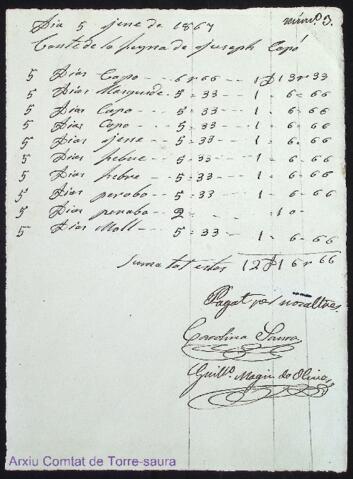 núm.º 3.
Dia 5 jene de 1867
Conte de la feyna de Juseph Capó
5 Dias Capo -- 6 r 66 -- 1 D 13 r 33
5 Dias 5 = 33 -- 1 . 6 - 66
5 Dias Capo -- 5 - 33 -- 1 . 6 - 66
5 Dias Capo -- 5 - 33 -- 1 . 6 - 66
5 Dias jene -- 5 - 33 -- 1 - 6 - 66
5 Dias febre -- 5 - 33 -- 1 - 6 - 66
5 Dias febre -- 5 - 33 -- 1 - 6 - 66
5 Dias 5 = 33 -- 1 . 6 - 66
5 Dias 2 = -- 10 -
5 Dias Moll -- 5 = 33 -- 1 - 6 - 66
Suma tot estos 12 D 16 r 66
Pagat per nosaltres
Carolina Saura
Guill.º Magin de Olives
Arxiu Comtat de Torre-saura